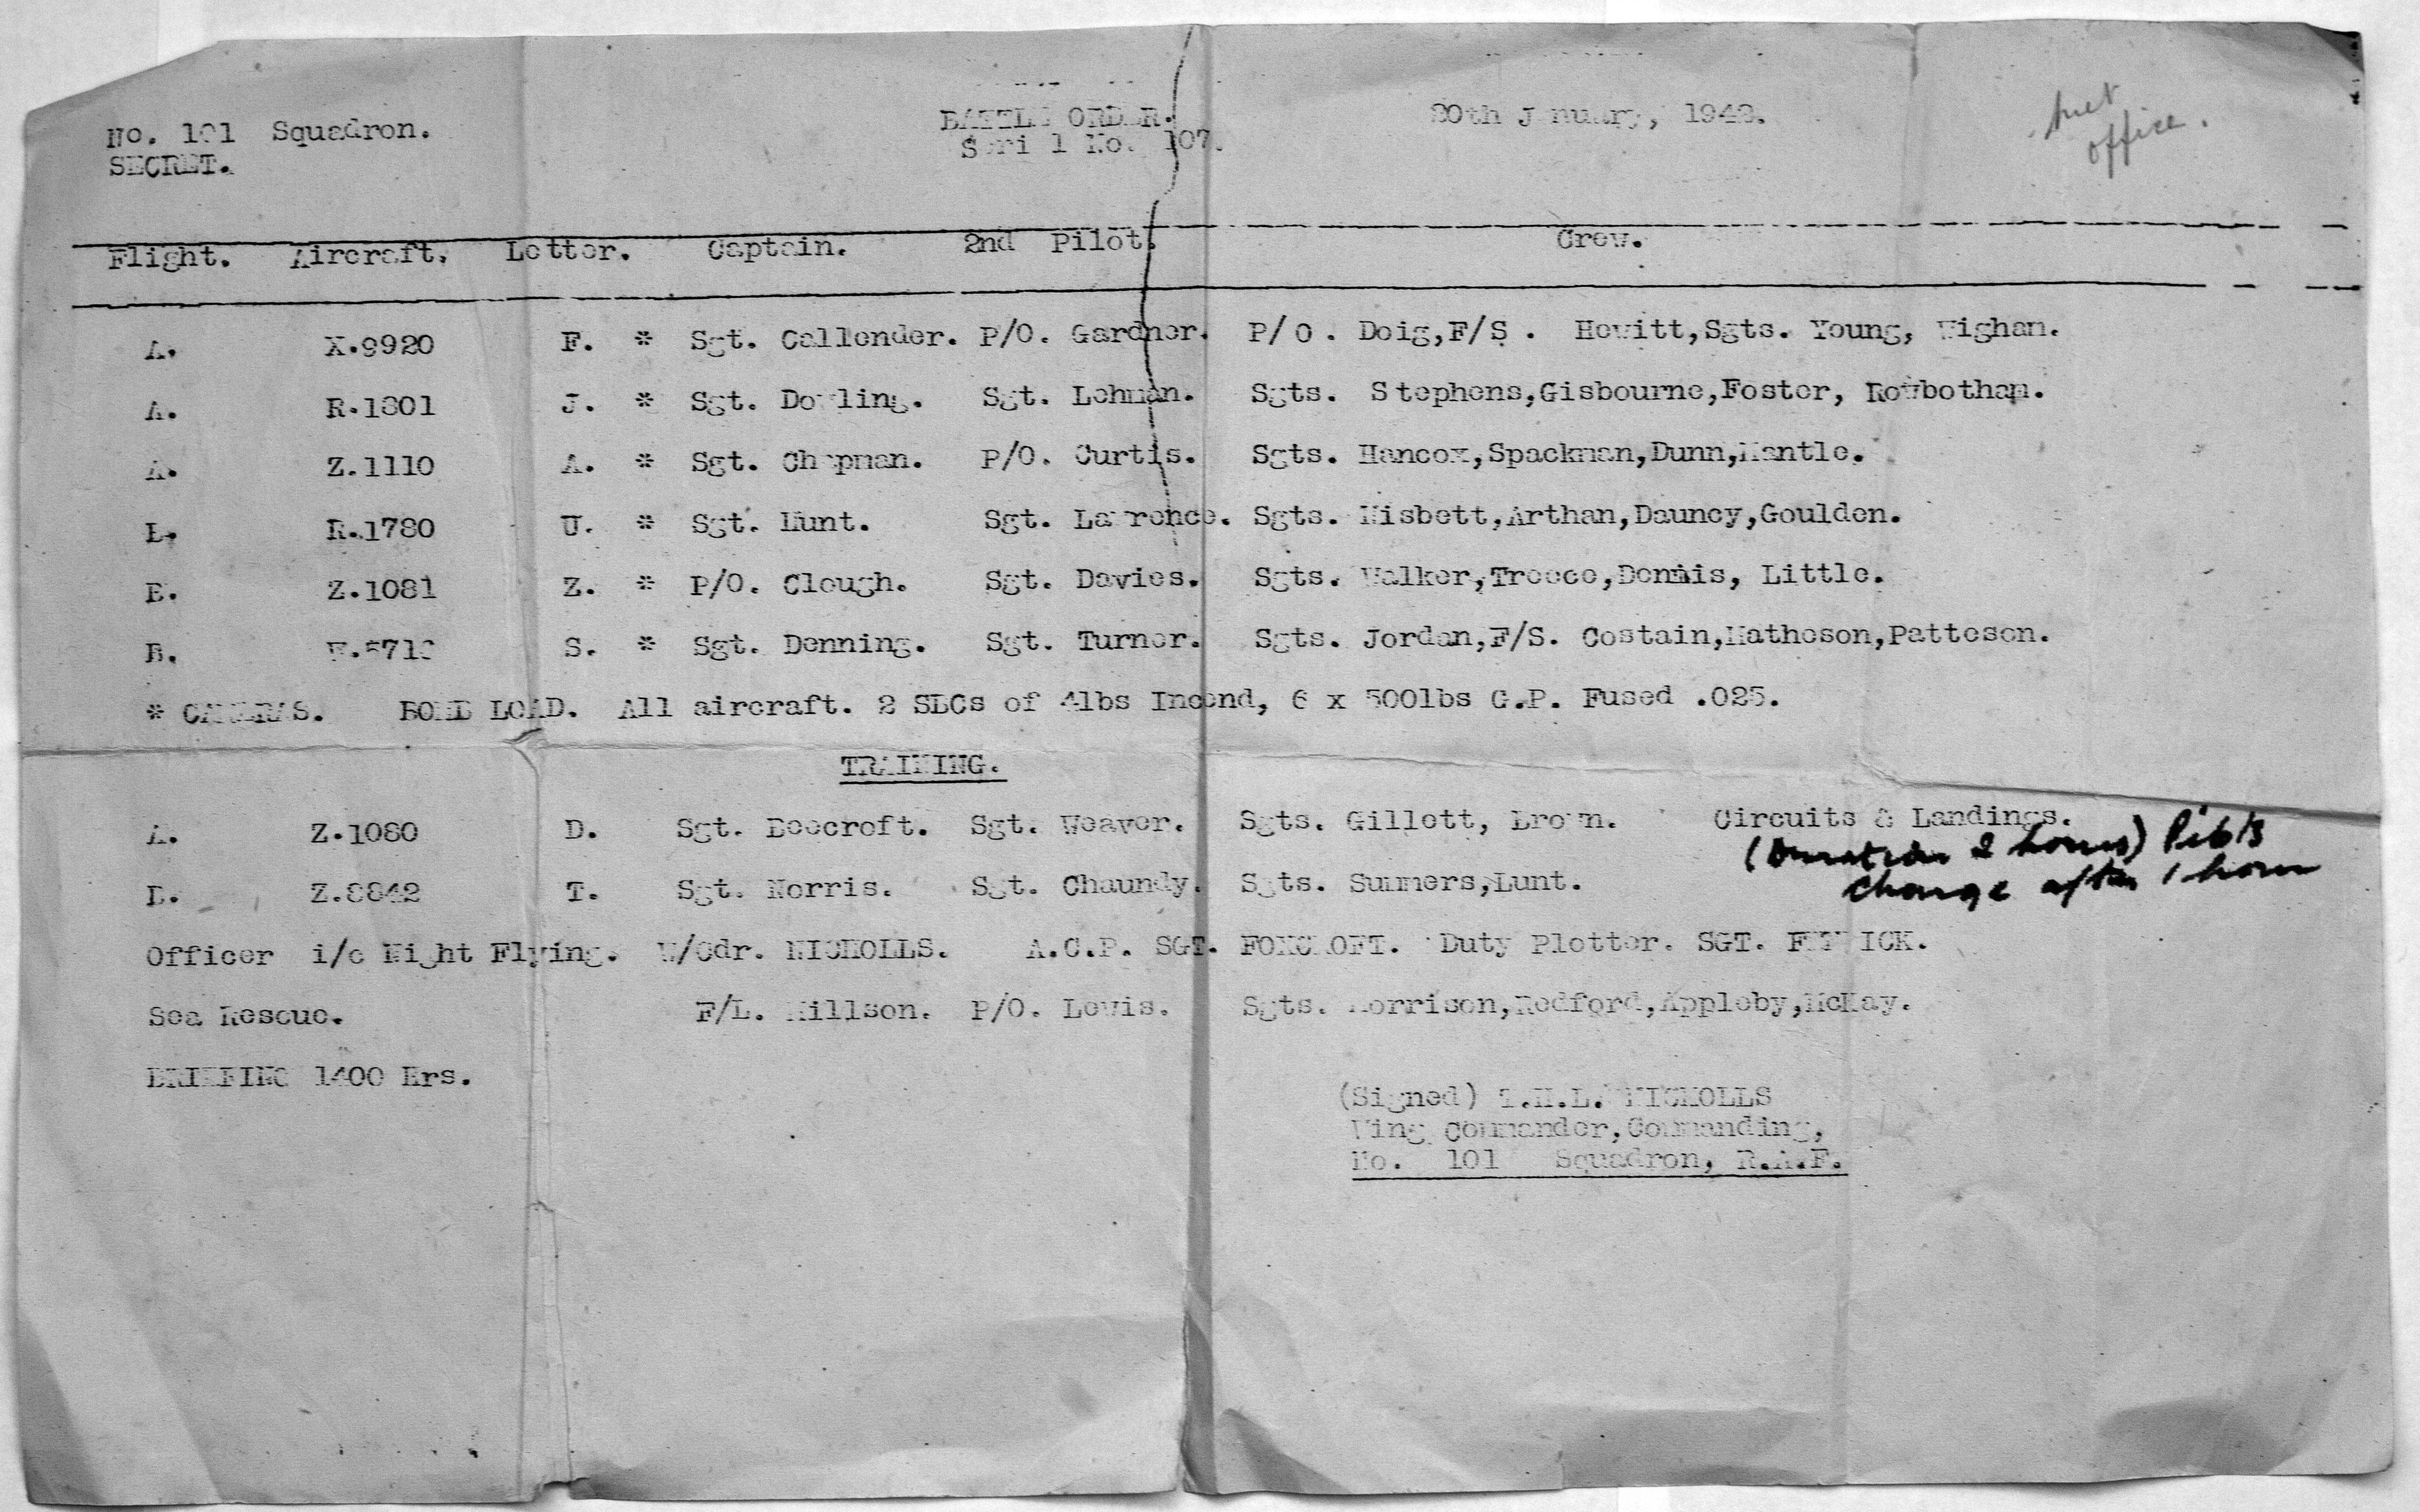 No. 101 Squadron.
SECRET.
BATTLE ORDER.
Serial No. 107.
20th January, 1942.
met
office.
Flight. Aircraft. Letter. Captain. 2nd Pilot. Crew.
A. X.9920 F. * Sgt. Callender. P/O. Gardner. P/O. Doig,F/S. Hewitt,Sgts. Young, Wighan.
A. R.1801 J. * Sgt. Dowling. Sgt. Lehman. Sgts. Stephens,Gisbourne,Foster, Rowbotham.
A. Z.1110 A. * Sgt. Chapman. P/O. Curtis. Sgts. Hancox,Spackman,Dunn,Mantle.
B. R.1780 U. * Sgt. Hunt. Sgt. Lawrence. Sgts. Nisbett,Arthan,Dauncy,Goulden.
B. Z.1081 Z. * P/O. Clough. Sgt. Davies. Sgts. Walker,Treece,Dennis, Little.
B. S. * Sgt. Denning. Sgt. Turner. Sgts. Jordan,F/S. Costain,Matheson,Patteson.
* CAMERAS. BOMB LOAD. All aircraft. 2 SBCs of 4lbs Incend, 6 x 500lbs G.P. Fused .025.
TRAINING.
A. Z.1080 D. Sgt. Beecroft. Sgt. Weaver. Sgts. Gillett, Brown. Circuits & Landings.
(Duration 2 hours) Pilots
change after 1 hour
B. Z.8842 T. Sgt. Norris. Sgt. Chaundy. Sgts. Summers,Lunt.
Officer i/c Night Flying. W/Cdr. NICHOLLS. A.C.P. SGT. FOXCROFT. Duty Plotter. SGT.
Sea Rescue. F/L. Millson. P/O. Lewis. Sgts. Morrison,Redford,Appleby,McKay.
BRIEFING 1400 Hrs.
(Signed) T.H.L. NICHOLLS
Wing Commander,Commanding,
No. 101 Squadron, R.A.F.